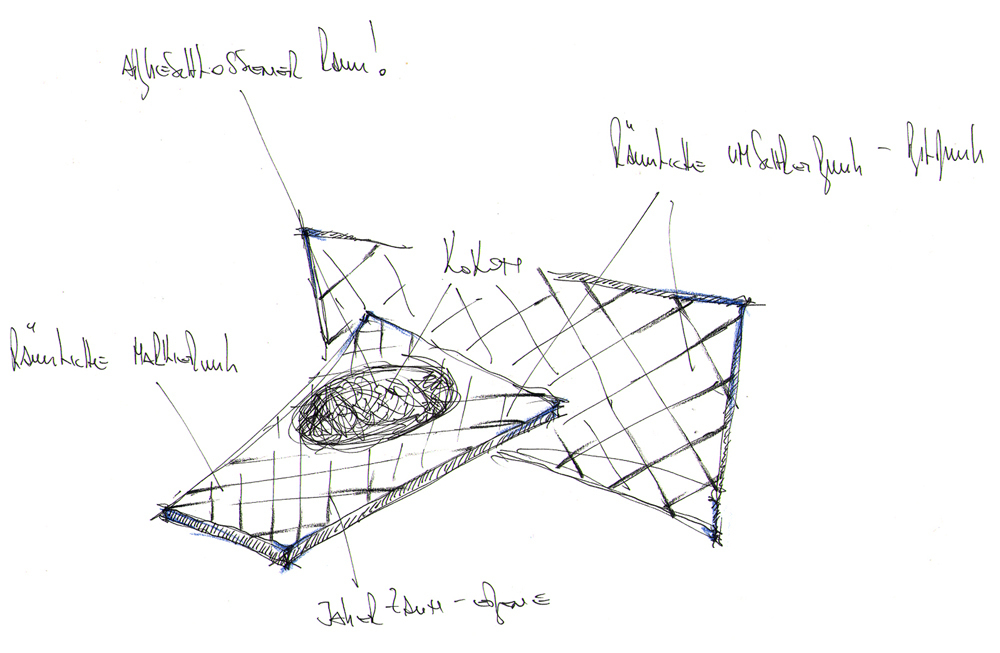 ABGESCHLOSSENER RAUM!
RÄUMLICHE UMSCHREIBUNG -
KOKON
RÄUMLICHE MARKIERUNG
JAGERZAUN - EBENE